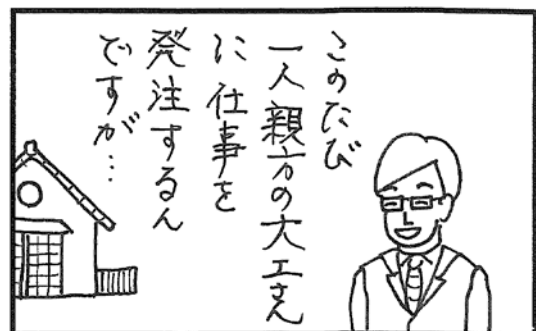 このたび
一人親方の大工さん
に仕事を
発注するん
ですが…